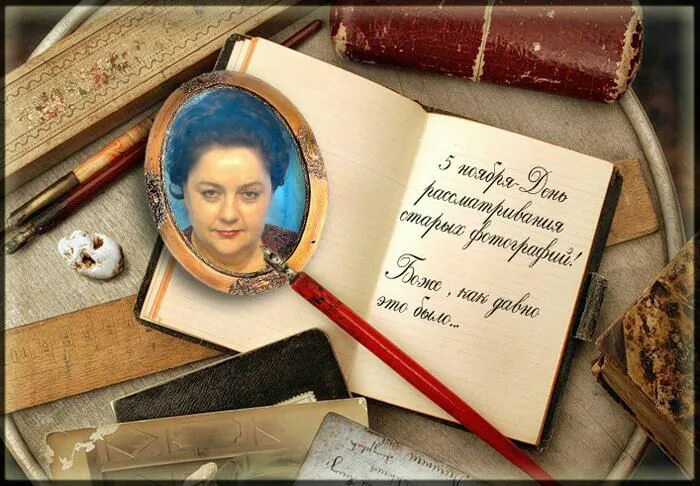 5 ноября-День
рассматривания
старых фотографий!
Боже, как давно
это было...